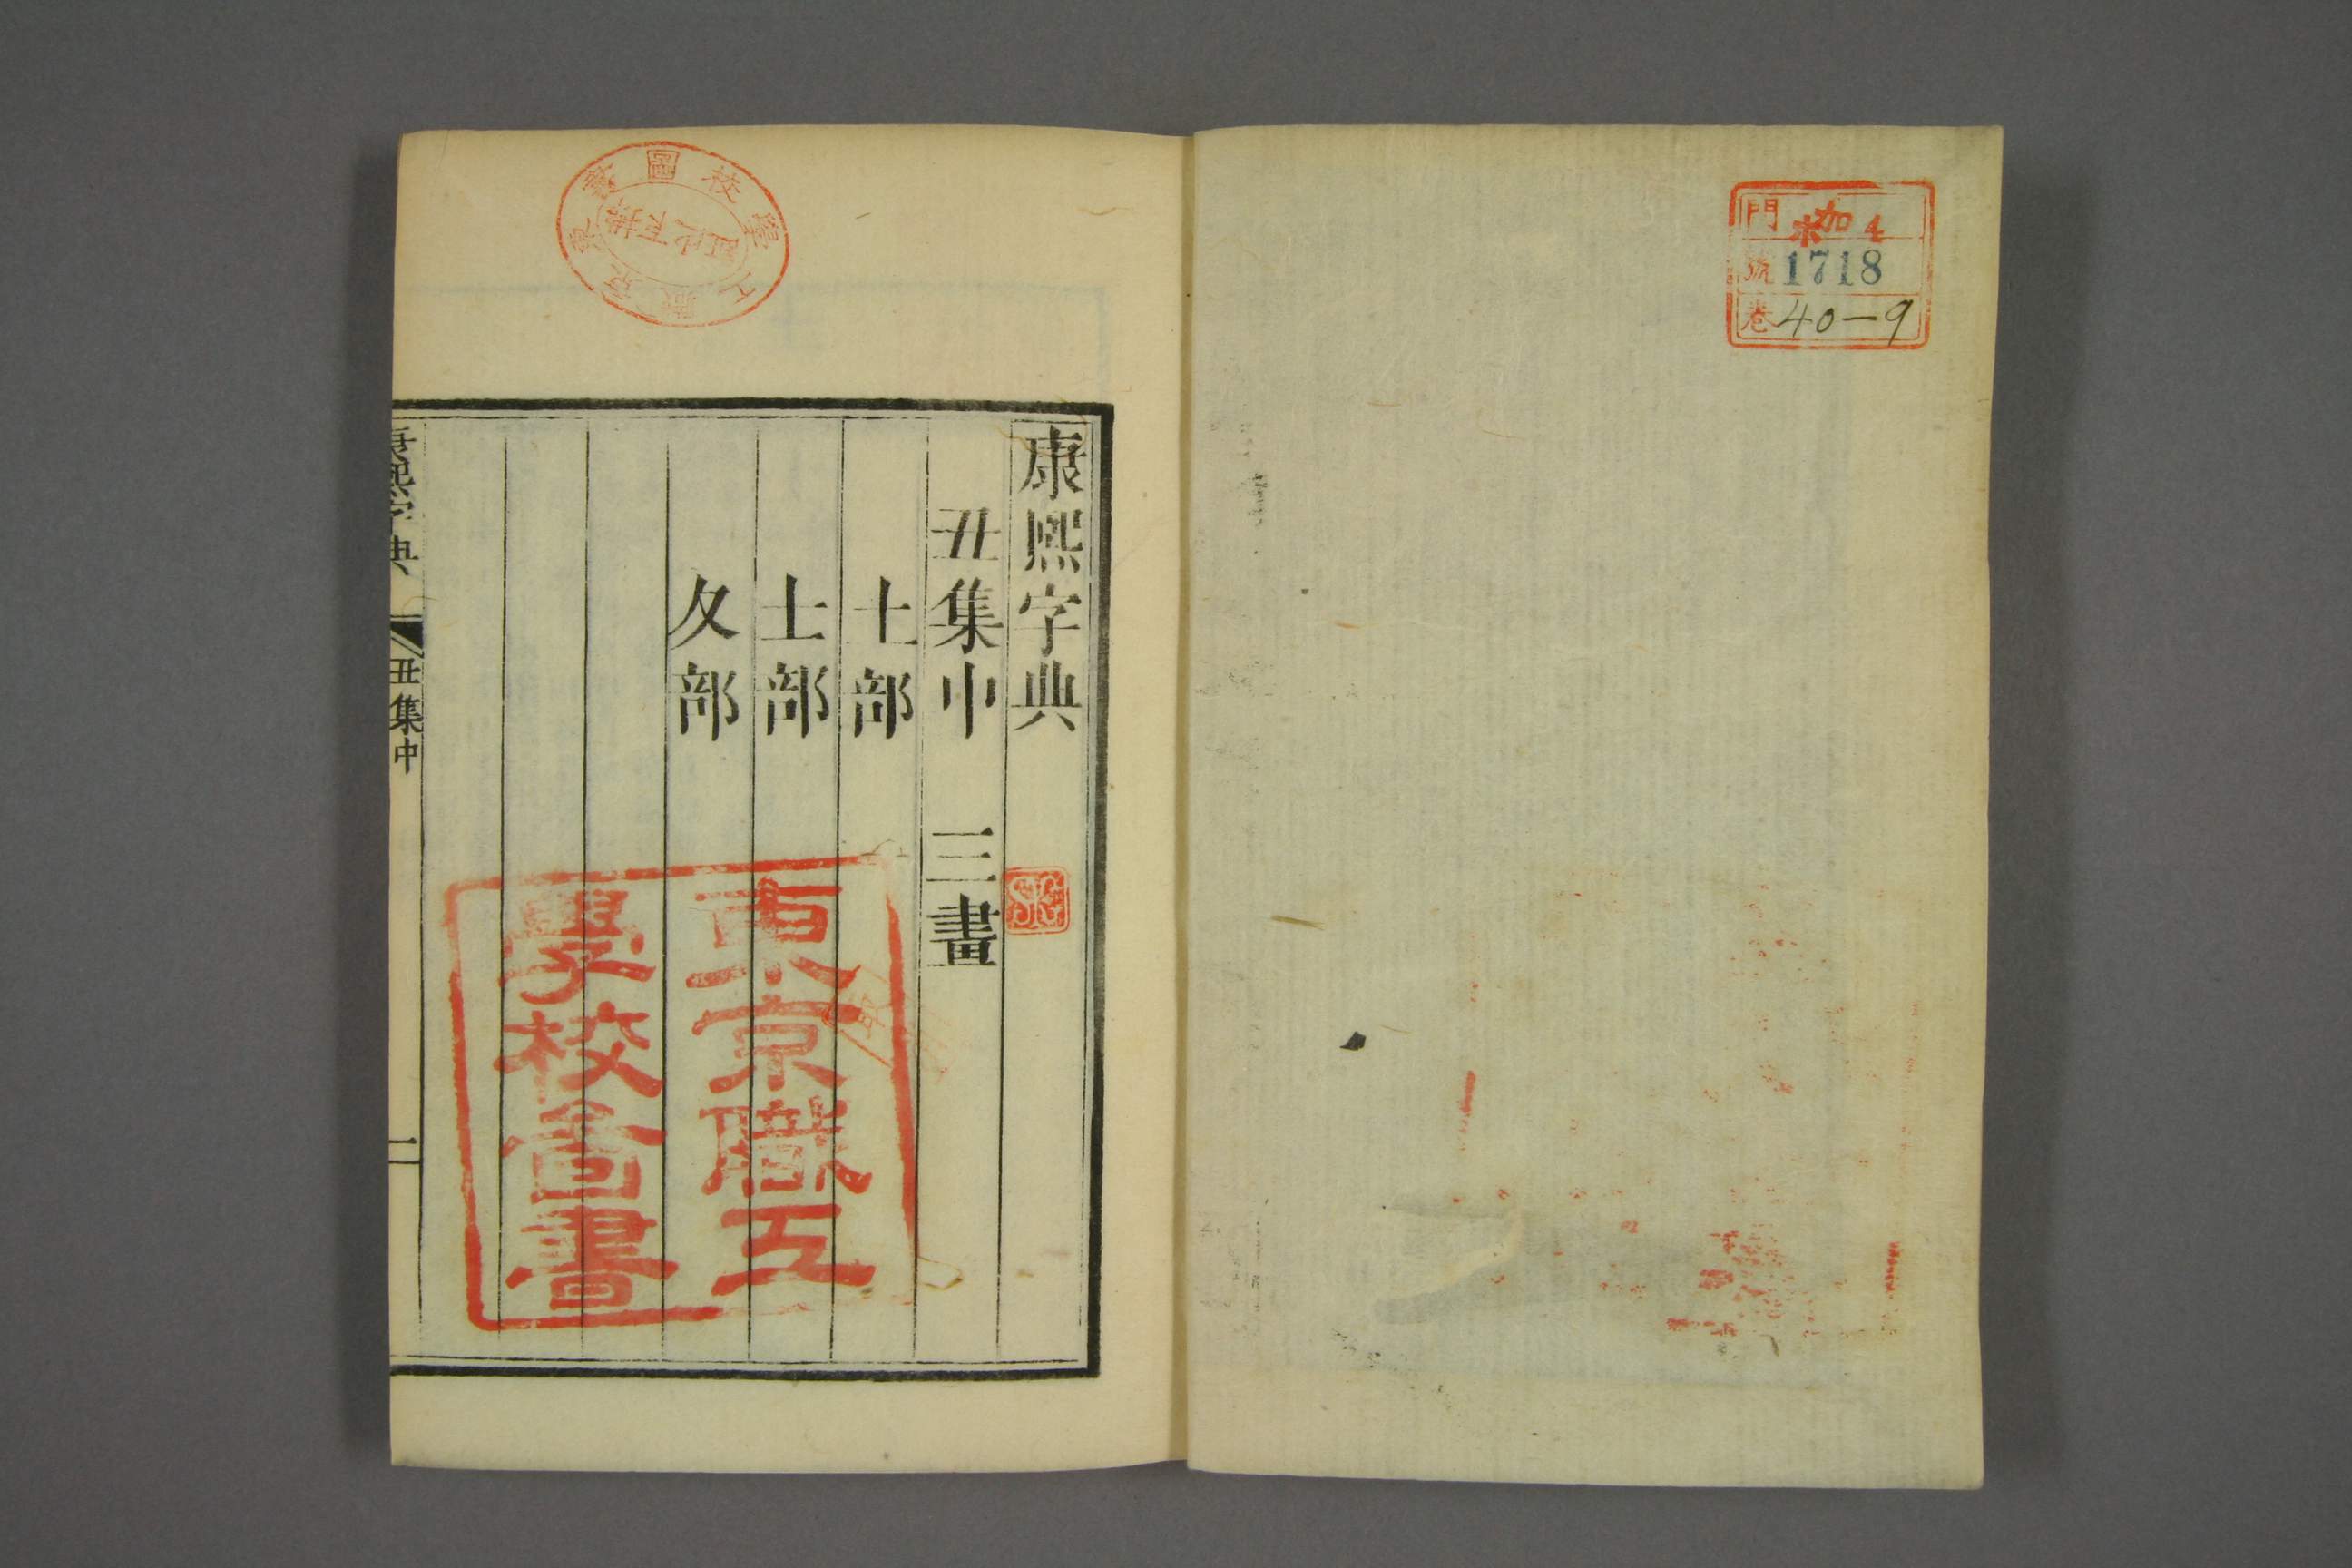 門 加 4
號 1718
巻 40-9
康熙字典
丑集中 三畫
土部
士部
夊部
東京職工
學校啚書
康熙字典 丑集中 一
東京職工學校圖書